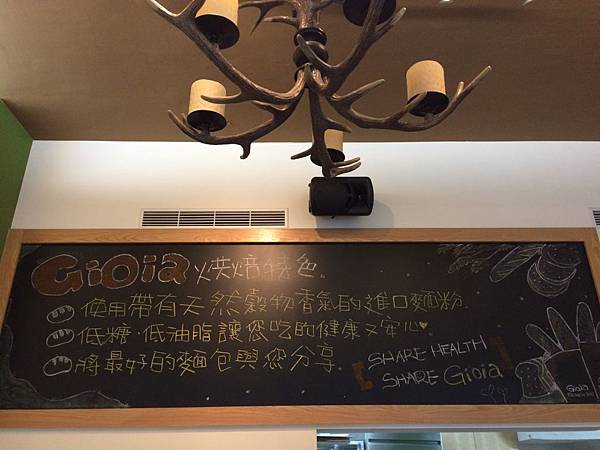 Gioia 烘焙特色。
使用帶有天然穀物香氣的進口麵粉.
低糖.低油脂讓您吃的健康又安心♥
將最好的麵包與您分享.
SHARE HEALTH
SHARE Gioia
Gioia